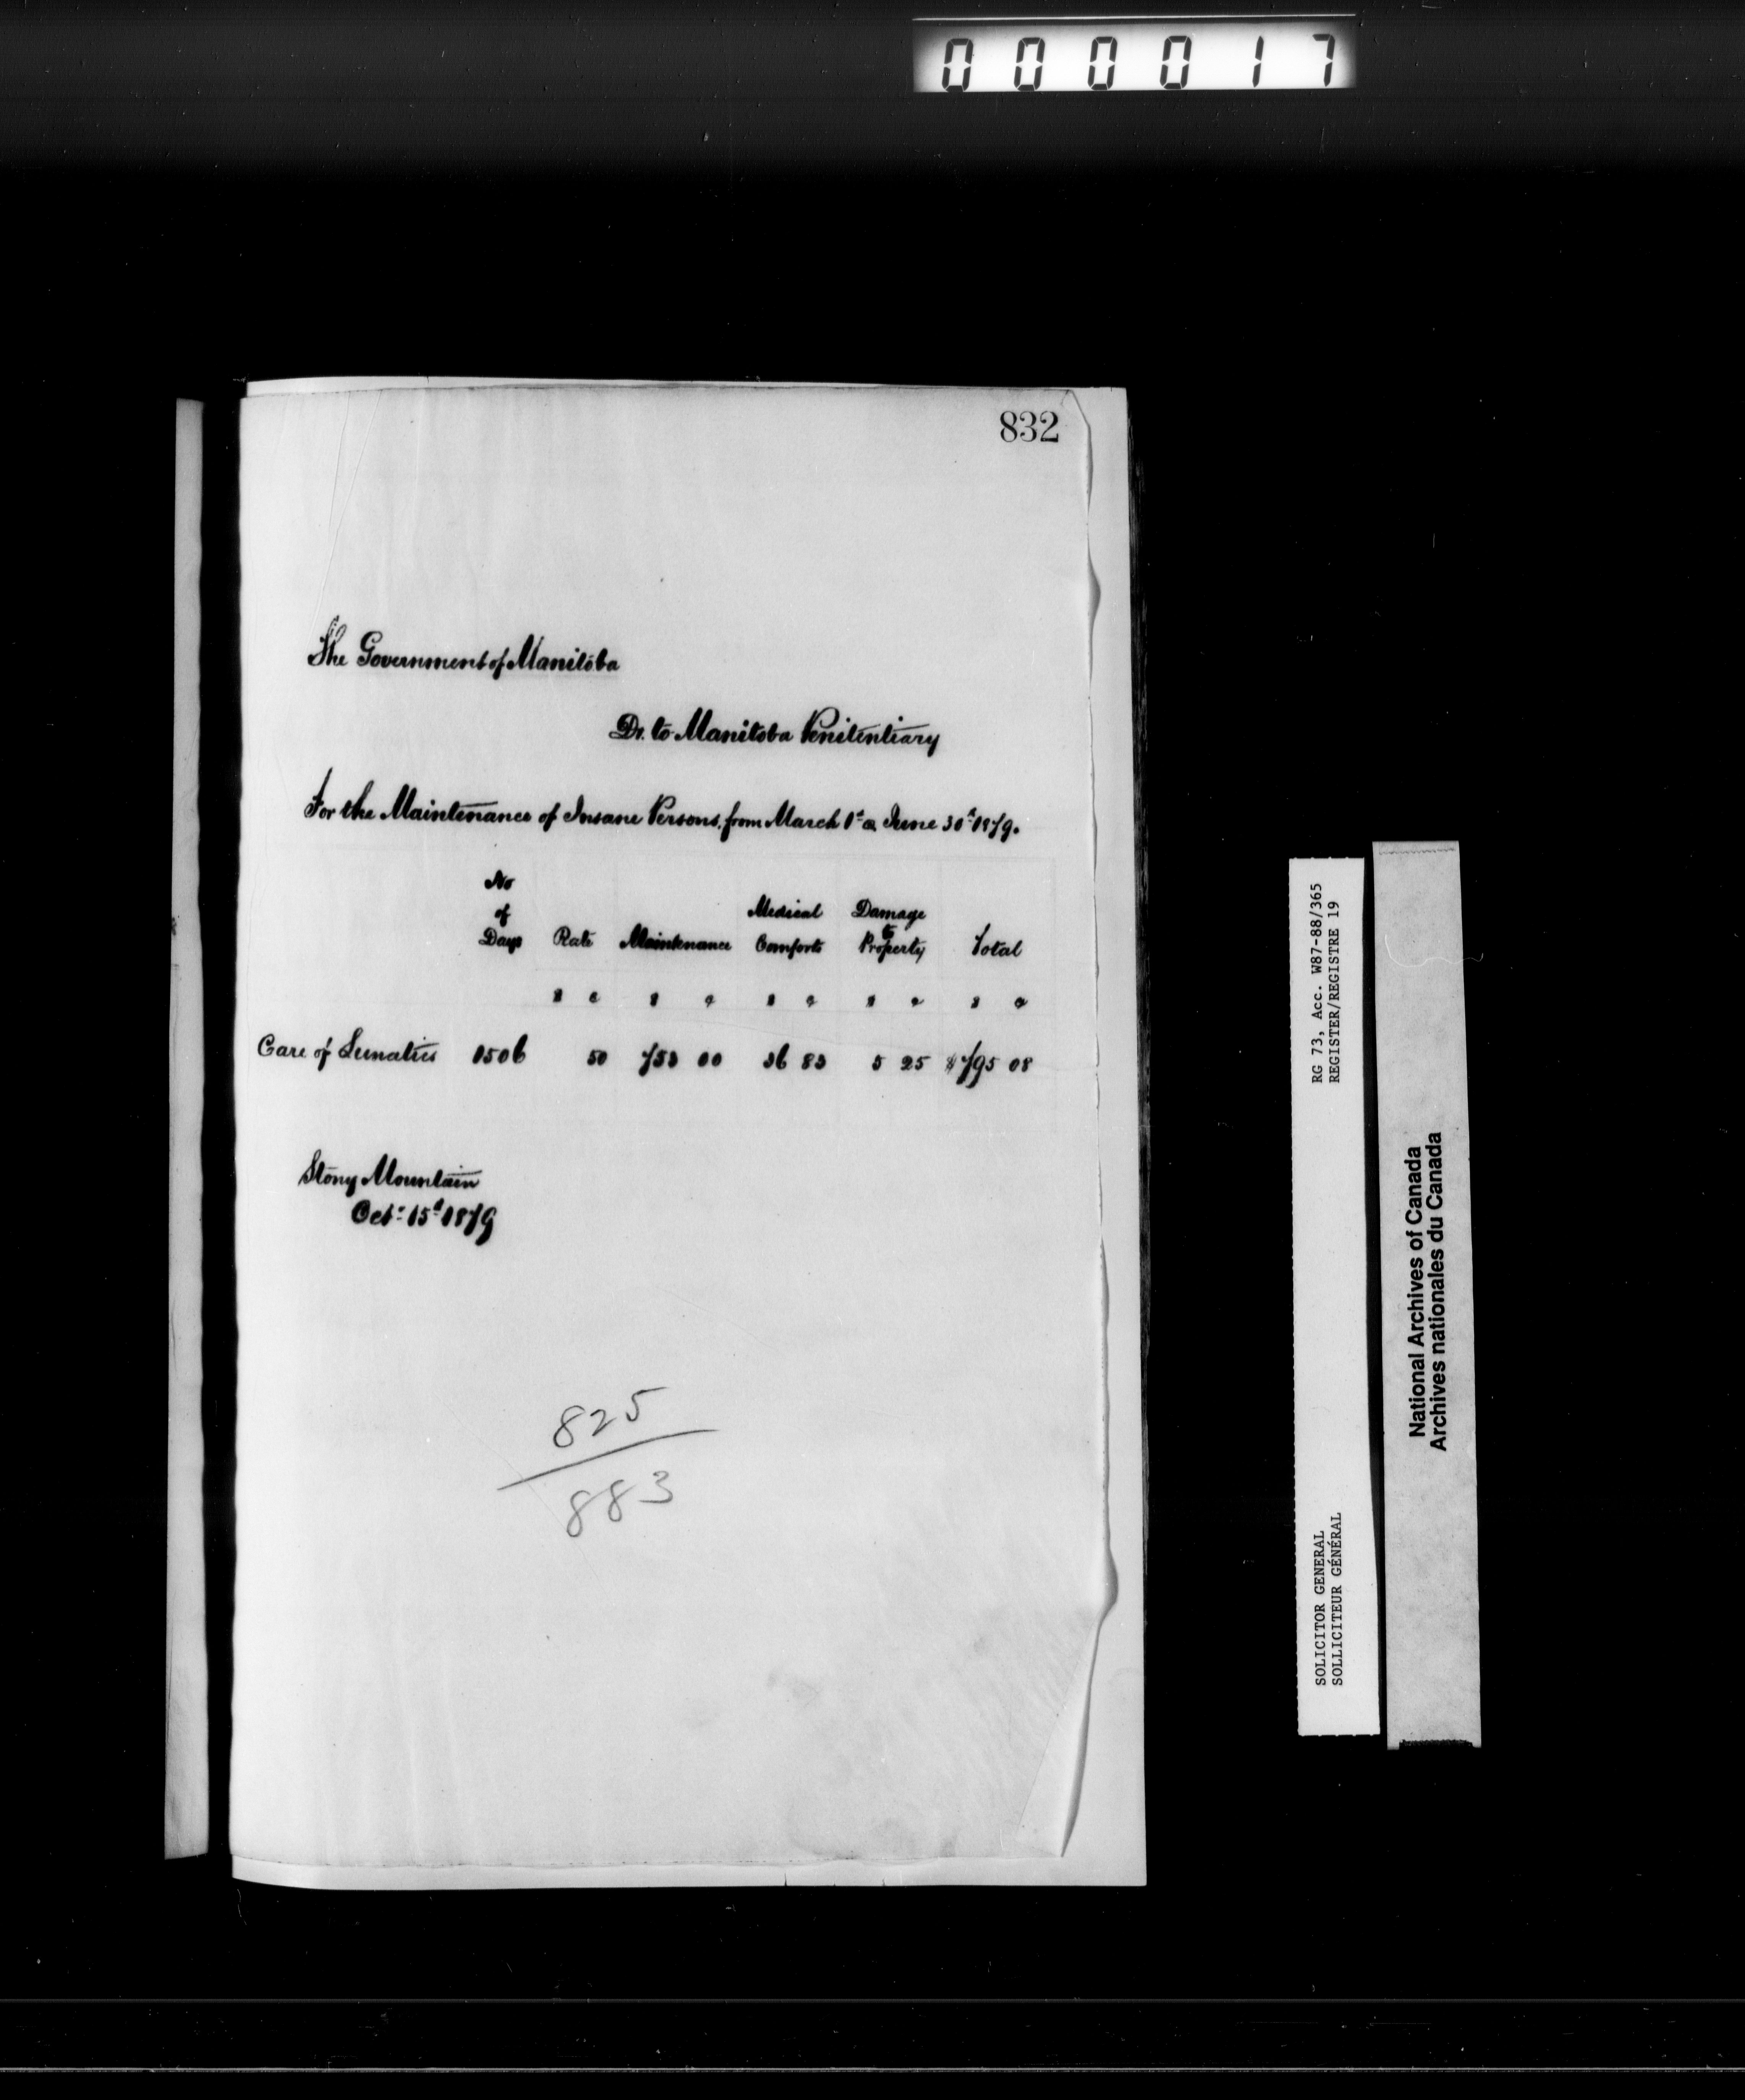 000017
832
The Government of Manitoba
Dr. to Manitoba Penitentiary
For the Maintenance of Insane Persons, from March 1st a June 30th 1879.
No of Days Rate Maintenance Medical Comforts Damage to Property Total
$ c $ c $ c $ c $ c
Care of Lunatics 1506 50 753 00 36 83 5 25 $795 08
Stony Mountain
Oct. 15th 1879
825
883
RG 73, Acc. W87-88/365
REGISTER/REGISTRE 19
SOLICITOR GENERAL
SOLLICITEUR GÉNÉRAL
National Archives of Canada
Archives nationales du Canada